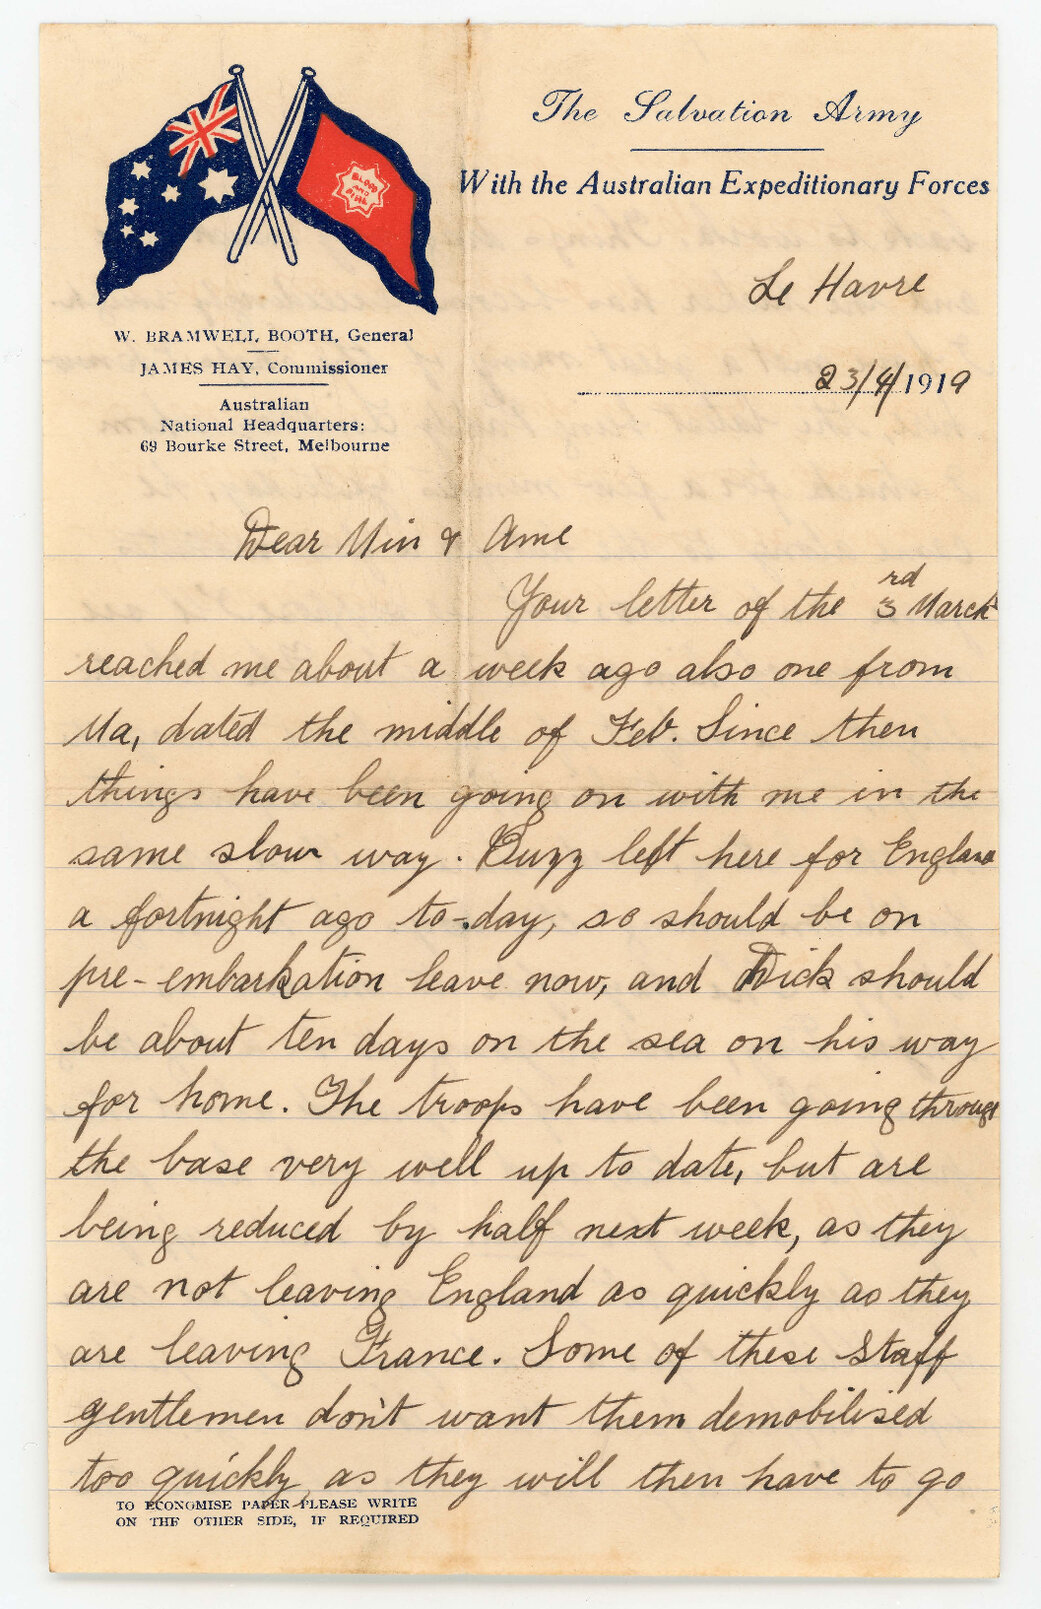 The Salvation Army
With the Australian Expeditionary Forces
BLOOD
AND
FIRE
W. BRAMWELL BOOTH, General
JAMES HAY, Commissioner
Australian
National Headquarters:
69 Bourke Street, Melbourne
Le Havre
23/4/1919
Dear Min & Ame
Your letter of the 3rd March
reached me about a week ago also one from
Ma, dated the middle of Feb. Since then
things have been going on with me in the
same slow way. Buzz left here for England
a fortnight ago to-day, so should be on
pre-embarkation leave now, and Dick should
be about ten days on the sea on his way
for home. The troops have been going through
the base very well up to date, but are
being reduced by half next week, as they
are not leaving England as quickly as they
are leaving France. Some of these Staff
gentlemen don't want them demobilised
too quickly, as they will then have to go
TO ECONOMISE PAPER PLEASE WRITE
ON THE OTHER SIDE, IF REQUIRED